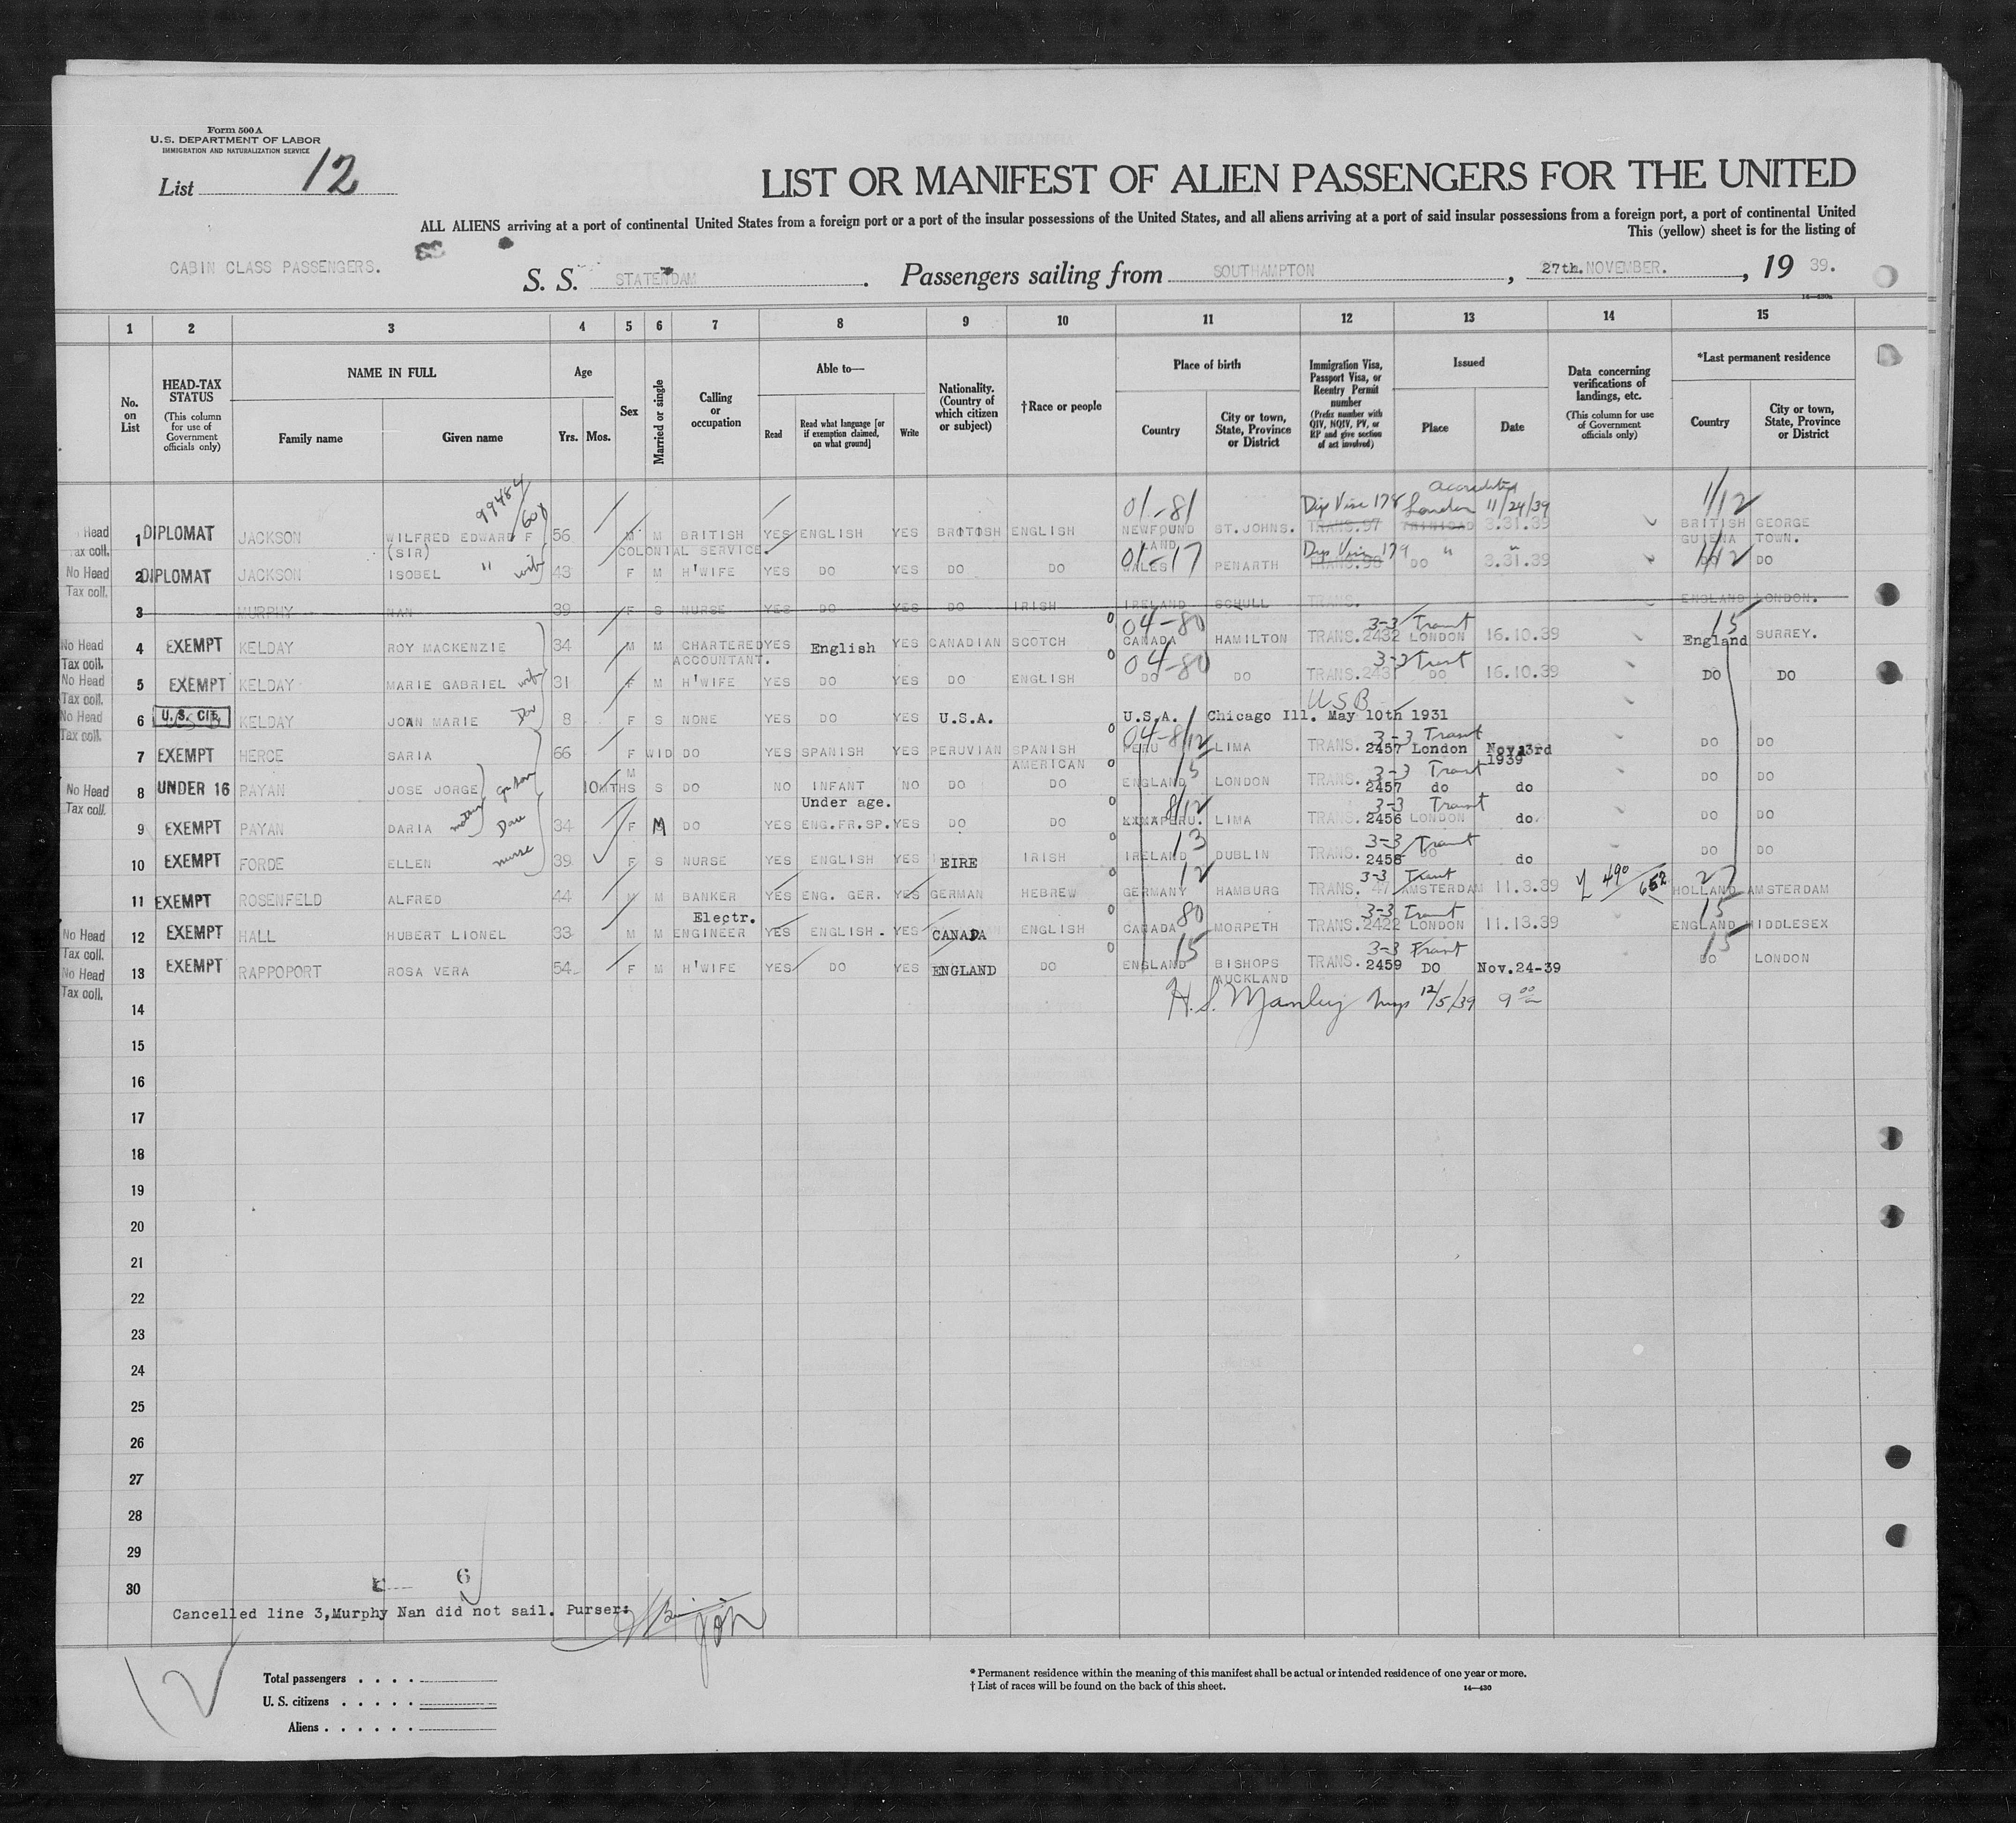 Form 500 A
U. S. DEPARTMENT OF LABOR
IMMIGRATION AND NATURALIZATION SERVICE
List 12
LIST OR MANIFEST OF ALIEN PASSENGERS FOR THE UNITED
ALL ALIENS arriving at a port of continental United States from a foreign port or a port of the insular possessions of the United States, and all aliens arriving at a port of said insular possessions from a foreign port, a port of continental United
This (yellow) sheet is for the listing of
CABIN CLASS PASSENGERS.
S. S. STATENDAM. Passengers sailing from SOUTHAMPTON, 27th. NOVEMBER., 19 39.
14—430a
1 2 3 4 5 6 7 8 9 10 11 12 13 14 15
No. on List
HEAD-TAX STATUS (This column for use of Government officials only)
NAME IN FULL Family name Given name
Age Yrs. Mos.
Sex
Married or single
Calling or occupation
Able to— Read Read what language [or if exemption claimed, on what ground] Write
Nationality. (Country of which citizen or subject)
†Race or people
Place of birth Country City or town, State, Province or District
Immigration Visa, Passport Visa, or Reentry Permit number (Prefix number with QIV, NQIV, PV, or RP and give section of act involved)
Issued Place Date
Data concerning verifications of landings, etc. (This column for use of Government officials only)
*Last permanent residence Country City or town, State, Province or District
99484/608 01-81 Dip Visa 178 accredited London 11/24/39 1/12
Head Tax coll. 1 DIPLOMAT JACKSON WILFRED EDWARD F 56 M M BRITISH YES ENGLISH YES BRITISH ENGLISH NEWFOUND ST.JOHNS. TRANS.97 TRINIDAD 3.31.39 BRITISH GEORGE
(SIR) COLONIAL SERVICE. LAND GUIENA TOWN.
01-17 Dip Visa 179 " " 1/12
No Head Tax coll. 2 DIPLOMAT JACKSON ISOBEL " wife 43 F M H'WIFE YES DO YES DO DO WALES PENARTH TRANS.98 DO 3.31.39 DO DO
3 MURPHY NAN 39 F S NURSE YES DO YES DO IRISH IRELAND SCHULL TRANS. ENGLAND LONDON.
04-80 3-3 Transit 15
No Head Tax coll. 4 EXEMPT KELDAY ROY MACKENZIE 34 M M CHARTERED YES English YES CANADIAN SCOTCH CANADA HAMILTON TRANS.2432 LONDON 16.10.39 England SURREY.
ACCOUNTANT.
04-80 3-3 Transit
No Head Tax coll. 5 EXEMPT KELDAY MARIE GABRIEL wife 31 F M H'WIFE YES DO YES DO ENGLISH DO DO TRANS.2431 DO 16.10.39 DO DO
USB
No Head Tax coll. 6 U.S. CIT. KELDAY JOAN MARIE Dau 8 F S NONE YES DO YES U.S.A. U.S.A. Chicago Ill. May 10th 1931
04-8/12 3-3 Transit
7 EXEMPT HERCE SARIA 66 F WID DO YES SPANISH YES PERUVIAN SPANISH PERU LIMA TRANS. 2457 London Nov.3rd DO DO
AMERICAN 1939
15 3-3 Transit
No Head Tax coll. 8 UNDER 16 PAYAN JOSE JORGE 10MTHS M S DO NO INFANT NO DO DO ENGLAND LONDON TRANS. 2457 do do DO DO
Under age.
8/12 3-3 Transit
9 EXEMPT PAYAN DARIA mother Dau 34 F M DO YES ENG.FR.SP. YES DO DO PERU. LIMA TRANS. 2456 LONDON do DO DO
13 3-3 Transit
10 EXEMPT FORDE ELLEN nurse 39 F S NURSE YES ENGLISH YES EIRE IRISH IRELAND DUBLIN TRANS. 2458 DO do DO DO
12 3-3 Transit 27
11 EXEMPT ROSENFELD ALFRED 44 M M BANKER YES ENG. GER. YES GERMAN HEBREW GERMANY HAMBURG TRANS. 47 AMSTERDAM 11.3.39 490/652 HOLLAND AMSTERDAM
Electr. 80 3-3 Transit 15
No Head Tax coll. 12 EXEMPT HALL HUBERT LIONEL 33 M M ENGINEER YES ENGLISH. YES CANADA ENGLISH CANADA MORPETH TRANS.2422 LONDON 11.13.39 ENGLAND MIDDLESEX
15 3-3 Transit 15
No Head Tax coll. 13 EXEMPT RAPPOPORT ROSA VERA 54 F M H'WIFE YES DO YES ENGLAND DO ENGLAND BISHOPS TRANS. 2459 DO Nov.24-39 DO LONDON
AUCKLAND
14 H. S. Manley Insp 12/5/39 9 00
15
16
17
18
19
20
21
22
23
24
25
26
27
28
29
30
6
Cancelled line 3,Murphy Nan did not sail. Purser:
12
Total passengers . . . .
U. S. citizens . . . . .
Aliens . . . . . .
* Permanent residence within the meaning of this manifest shall be actual or intended residence of one year or more.
† List of races will be found on the back of this sheet.
14—430